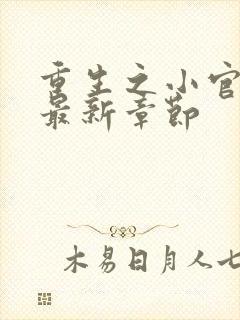 重生之小官
最新章节
木易日月人七